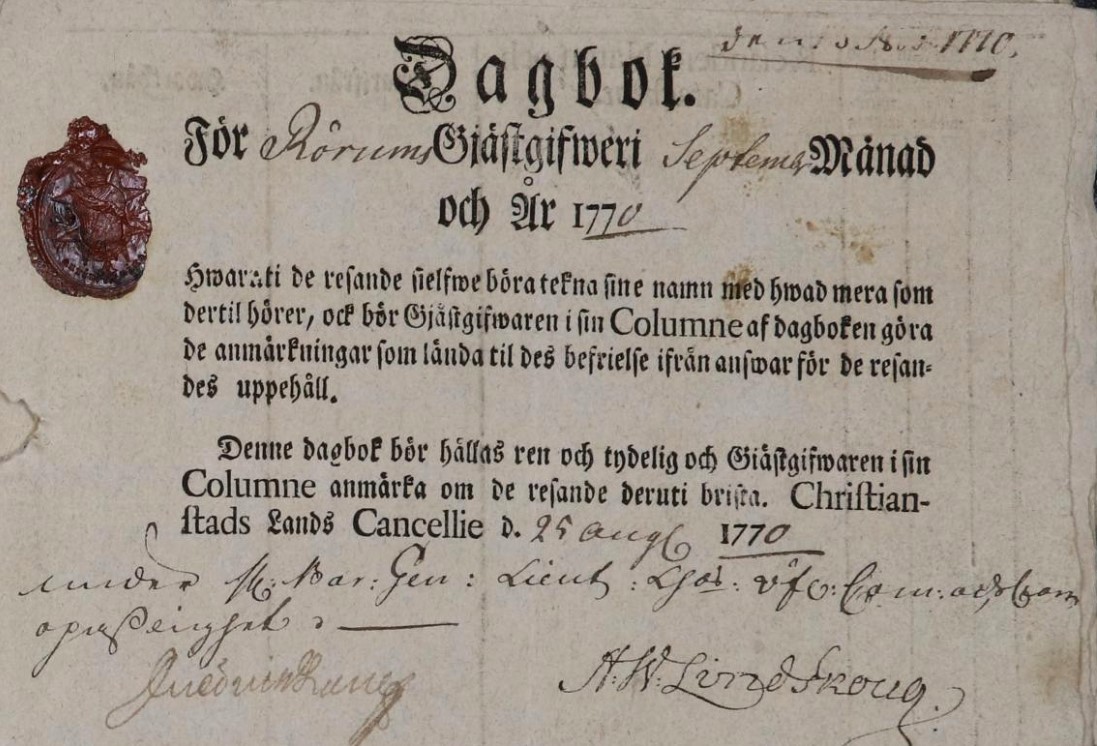 1770.
Dagbok.
För Rörums Gjästgifweri Septemb Månad
och År 1770
Hwaruti de resande sielfwe böra tekna sine namn med hwad mera som
dertil hörer, ock bör Gjästgifwaren i sin Columne af dagboken göra
de anmärkningar som lända til des befrielse ifrån answar för de resan-
des uppehåll.
Denne dagbok bör hållas ren och tydelig och Giästgifwaren i sin
Columne anmärka om de resande deruti brista. Christian-
stads Lands Cancellie d. 25 Aug 1770
under Bar: Gen: Lieut:
A. W. Lindskoug.